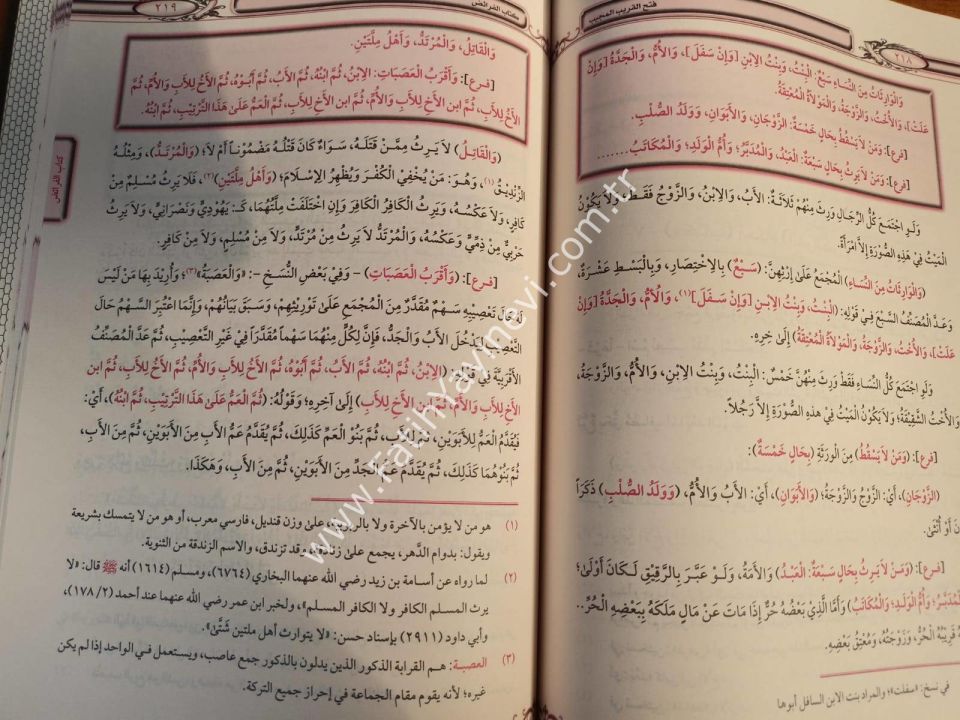 فتح القريب المجيب
٢١٨
وَالْوَارِثَاتُ مِنَ النِّسَاءِ سَبْعٌ: الْبِنْتُ، وَبِنْتُ الِابْنِ [وَإِنْ سَفَلَ]، وَالْأُمُّ، وَالْجَدَّةُ [وَإِنْ
عَلَتْ]، وَالْأُخْتُ، وَالزَّوْجَةُ، وَالْمَوْلَاةُ الْمُعْتِقَةُ.
[فرع]: وَمَنْ لَا يَسْقُطُ بِحَالٍ خَمْسَةٌ: الزَّوْجَانِ، وَالْأَبَوَانِ، وَوَلَدُ الصُّلْبِ.
[فرع]: وَمَنْ لَا يَرِثُ بِحَالٍ سَبْعَةٌ: الْعَبْدُ، وَالْمُدَبَّرُ؛ وَأُمُّ الْوَلَدِ، وَالْمُكَاتَبُ.......
وَلَوِ اجْتَمَعَ كُلُّ الرِّجَالِ وَرِثَ مِنْهُمْ ثَلَاثَةٌ: الْأَبُ، وَالِابْنُ، وَالزَّوْجُ فَقَطْ، وَلَا يَكُونُ
الْمَيْتُ فِي هَذِهِ الصُّورَةِ إِلَّا امْرَأَةً.
(وَالْوَارِثَاتُ مِنَ النِّسَاءِ) الْمُجْمَعُ عَلَى إِرْثِهِنَّ: (سَبْعٌ) بِالِاخْتِصَارِ، وَبِالْبَسْطِ عَشْرَةٌ،
وَعَدَّ الْمُصَنِّفُ السَّبْعَ فِي قَوْلِهِ: (الْبِنْتُ، وَبِنْتُ الِابْنِ [وَإِنْ سَفَلَ](١)، وَالْأُمُّ، وَالْجَدَّةُ [وَإِنْ
عَلَتْ]، وَالْأُخْتُ، وَالزَّوْجَةُ، وَالْمَوْلَاةُ الْمُعْتِقَةُ) إِلَى خِرِهِ.
وَلَوِ اجْتَمَعَ كُلُّ النِّسَاءِ فَقَطْ وَرِثَ مِنْهُنَّ خَمْسٌ: الْبِنْتُ، وَبِنْتُ الِابْنِ، وَالْأُمُّ، وَالزَّوْجَةُ،
وَالْأُخْتُ الشَّقِيقَةُ؛ وَلَا يَكُونُ الْمَيْتُ فِي هَذِهِ الصُّورَةِ إِلَّا رَجُلًا.
[فرع]: (وَمَنْ لَا يَسْقُطُ) مِنَ الْوَرَثَةِ (بِحَالٍ خَمْسَةٌ):
(الزَّوْجَانِ)، أَيْ: الزَّوْجُ وَالزَّوْجَةُ؛ (وَالْأَبَوَانِ)، أَيْ: الْأَبُ وَالْأُمُّ، (وَوَلَدُ الصُّلْبِ) ذَكَرًا
أَوْ أُنْثَى.
[فرع]: (وَمَنْ لَا يَرِثُ بِحَالٍ سَبْعَةٌ: الْعَبْدُ) وَالْأَمَةُ، وَلَوْ عَبَّرَ بِالرَّقِيقِ لَكَانَ أَوْلَى؛
الْمُدَبَّرُ؛ وَأُمُّ الْوَلَدِ؛ وَالْمُكَاتَبُ) وَأَمَّا الَّذِي بَعْضُهُ حُرٌّ إِذَا مَاتَ عَنْ مَالٍ مَلَكَهُ بِبَعْضِهِ الْحُرِّ..
قَرِيبُهُ الْحُرُّ، وَزَوْجَتُهُ، وَمُعْتِقُ بَعْضِهِ.
في نسخ: «سفلت»؛ والمراد بنت الابن السافل أبوها
كتاب الفرائض
٢١٩
وَالْقَاتِلُ، وَالْمُرْتَدُّ، وَأَهْلُ مِلَّتَيْنِ.
[فرع]: وَأَقْرَبُ الْعَصَبَاتِ: الِابْنُ، ثُمَّ ابْنُهُ، ثُمَّ الْأَبُ، ثُمَّ أَبُوهُ، ثُمَّ الْأَخُ لِلْأَبِ وَالْأُمِّ، ثُمَّ
الْأَخُ لِلْأَبِ، ثُمَّ ابن الْأَخِ لِلْأَبِ وَالْأُمِّ، ثُمَّ ابن الْأَخِ لِلْأَبِ، ثُمَّ الْعَمُّ عَلَى هَذَا التَّرْتِيبِ، ثُمَّ ابْنُهُ.
(وَالْقَاتِلُ) لَا يَرِثُ مِمَّنْ قَتَلَهُ، سَوَاءٌ كَانَ قَتْلُهُ مَضْمُونًا أَمْ لَا؛ (وَالْمُرْتَدُّ)، وَمِثْلُهُ
الزِّنْدِيقُ(١)، وَهُوَ: مَنْ يُخْفِي الْكُفْرَ وَيُظْهِرُ الْإِسْلَامَ؛ (وَأَهْلُ مِلَّتَيْنِ)(٢)، فَلَا يَرِثُ مُسْلِمٌ مِنْ
كَافِرٍ، وَلَا عَكْسُهُ، وَيَرِثُ الْكَافِرُ الْكَافِرَ وَإِنِ اخْتَلَفَتْ مِلَّتُهُمَا، كَـ: يَهُودِيٍّ وَنَصْرَانِيٍّ، وَلَا يَرِثُ
حَرْبِيٌّ مِنْ ذِمِّيٍّ وَعَكْسُهُ، وَالْمُرْتَدُّ لَا يَرِثُ مِنْ مُرْتَدٍّ، وَلَا مِنْ مُسْلِمٍ، وَلَا مِنْ كَافِرٍ.
[فرع]: (وَأَقْرَبُ الْعَصَبَاتِ) – وَفِي بَعْضِ النُّسَخِ –: «وَالْعَصَبَةُ»(٣)؛ وَأُرِيدَ بِهَا مَنْ لَيْسَ
لَهُ حَالَ تَعْصِيبِهِ سَهْمٌ مُقَدَّرٌ مِنَ الْمُجْمَعِ عَلَى تَوْرِيثِهِمْ، وَسَبَقَ بَيَانُهُمْ، وَإِنَّمَا اعْتُبِرَ السَّهْمُ حَالَ
التَّعْصِيبِ لِيَدْخُلَ الْأَبُ وَالْجَدُّ، فَإِنَّ لِكُلٍّ مِنْهُمَا سَهْمًا مُقَدَّرًا فِي غَيْرِ التَّعْصِيبِ، ثُمَّ عَدَّ الْمُصَنِّفُ
الْأَقْرَبِيَّةَ فِي قَوْلِهِ: (الِابْنُ، ثُمَّ ابْنُهُ، ثُمَّ الْأَبُ، ثُمَّ أَبُوهُ، ثُمَّ الْأَخُ لِلْأَبِ وَالْأُمِّ، ثُمَّ الْأَخُ لِلْأَبِ، ثُمَّ ابن
الْأَخِ لِلْأَبِ وَالْأُمِّ، ثُمَّ ابن الْأَخِ لِلْأَبِ) إِلَى آخِرِهِ؛ وَقَوْلُهُ: (ثُمَّ الْعَمُّ عَلَى هَذَا التَّرْتِيبِ، ثُمَّ ابْنُهُ)، أَيْ:
فَيُقَدَّمُ الْعَمُّ لِلْأَبَوَيْنِ، ثُمَّ لِلْأَبِ، ثُمَّ بَنُو الْعَمِّ كَذَلِكَ، ثُمَّ يُقَدَّمُ عَمُّ الْأَبِ مِنَ الْأَبَوَيْنِ، ثُمَّ مِنَ الْأَبِ،
ثُمَّ بَنُوهُمَا كَذَلِكَ، ثُمَّ يُقَدَّمُ عَمُّ الْجَدِّ مِنَ الْأَبَوَيْنِ، ثُمَّ مِنَ الْأَبِ، وَهَكَذَا.
(١) هو من لا يؤمن بالآخرة ولا بالربوبية، على وزن قنديل، فارسي معرب، أو هو من لا يتمسك بشريعة
ويقول: بدوام الدَّهر، يجمع على زنادقة، وقد تزندق، والاسم الزندقة من الثنوية.
(٢) لما رواه عن أسامة بن زيد رضي الله عنهما البخاري (٦٧٦٤)، ومسلم (١٦١٤) أنه ﷺ قال: «لا
يرث المسلم الكافر ولا الكافر المسلم»، ولخبر ابن عمر رضي الله عنهما عند أحمد (٢/ ١٧٨)،
وأبي داود (٢٩١١) بإسناد حسن: «لا يتوارث أهل ملتين شَتَّى».
(٣) العصبة: هم القرابة الذكور الذين يدلون بالذكور جمع عاصب، ويستعمل في الواحد إذا لم يكن
غيره؛ لأنه يقوم مقام الجماعة في إحراز جميع التركة.
كتاب الفرائض
www.FatihYayinevi.com.tr